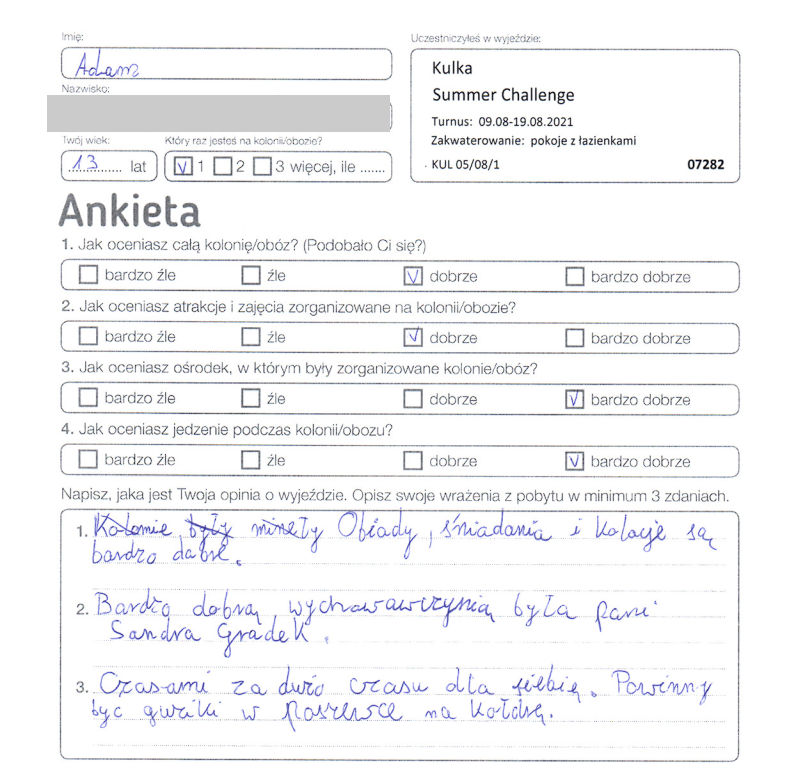 Imię:
Adam
Nazwisko:
Twój wiek:
13 lat
Który raz jesteś na kolonii/obozie?
1 2 3 więcej, ile .......
Uczestniczyłeś w wyjeździe:
Kulka
Summer Challenge
Turnus: 09.08-19.08.2021
Zakwaterowanie: pokoje z łazienkami
KUL 05/08/1 07282
Ankieta
1. Jak oceniasz całą kolonię/obóz? (Podobało Ci się?)
bardzo źle źle dobrze bardzo dobrze
2. Jak oceniasz atrakcje i zajęcia zorganizowane na kolonii/obozie?
bardzo źle źle dobrze bardzo dobrze
3. Jak oceniasz ośrodek, w którym były zorganizowane kolonie/obóz?
bardzo źle źle dobrze bardzo dobrze
4. Jak oceniasz jedzenie podczas kolonii/obozu?
bardzo źle źle dobrze bardzo dobrze
Napisz, jaka jest Twoja opinia o wyjeździe. Opisz swoje wrażenia z pobytu w minimum 3 zdaniach.
1. Kolonie były minęły Obiady, śniadania i kolacje są
bardzo dobre.
2. Bardzo dobrą wychowawczynią była pani
Sandra Gradek.
3. Czasami za dużo czasu dla siebię. Powinny
być guziki w poszewce na kołdrę.